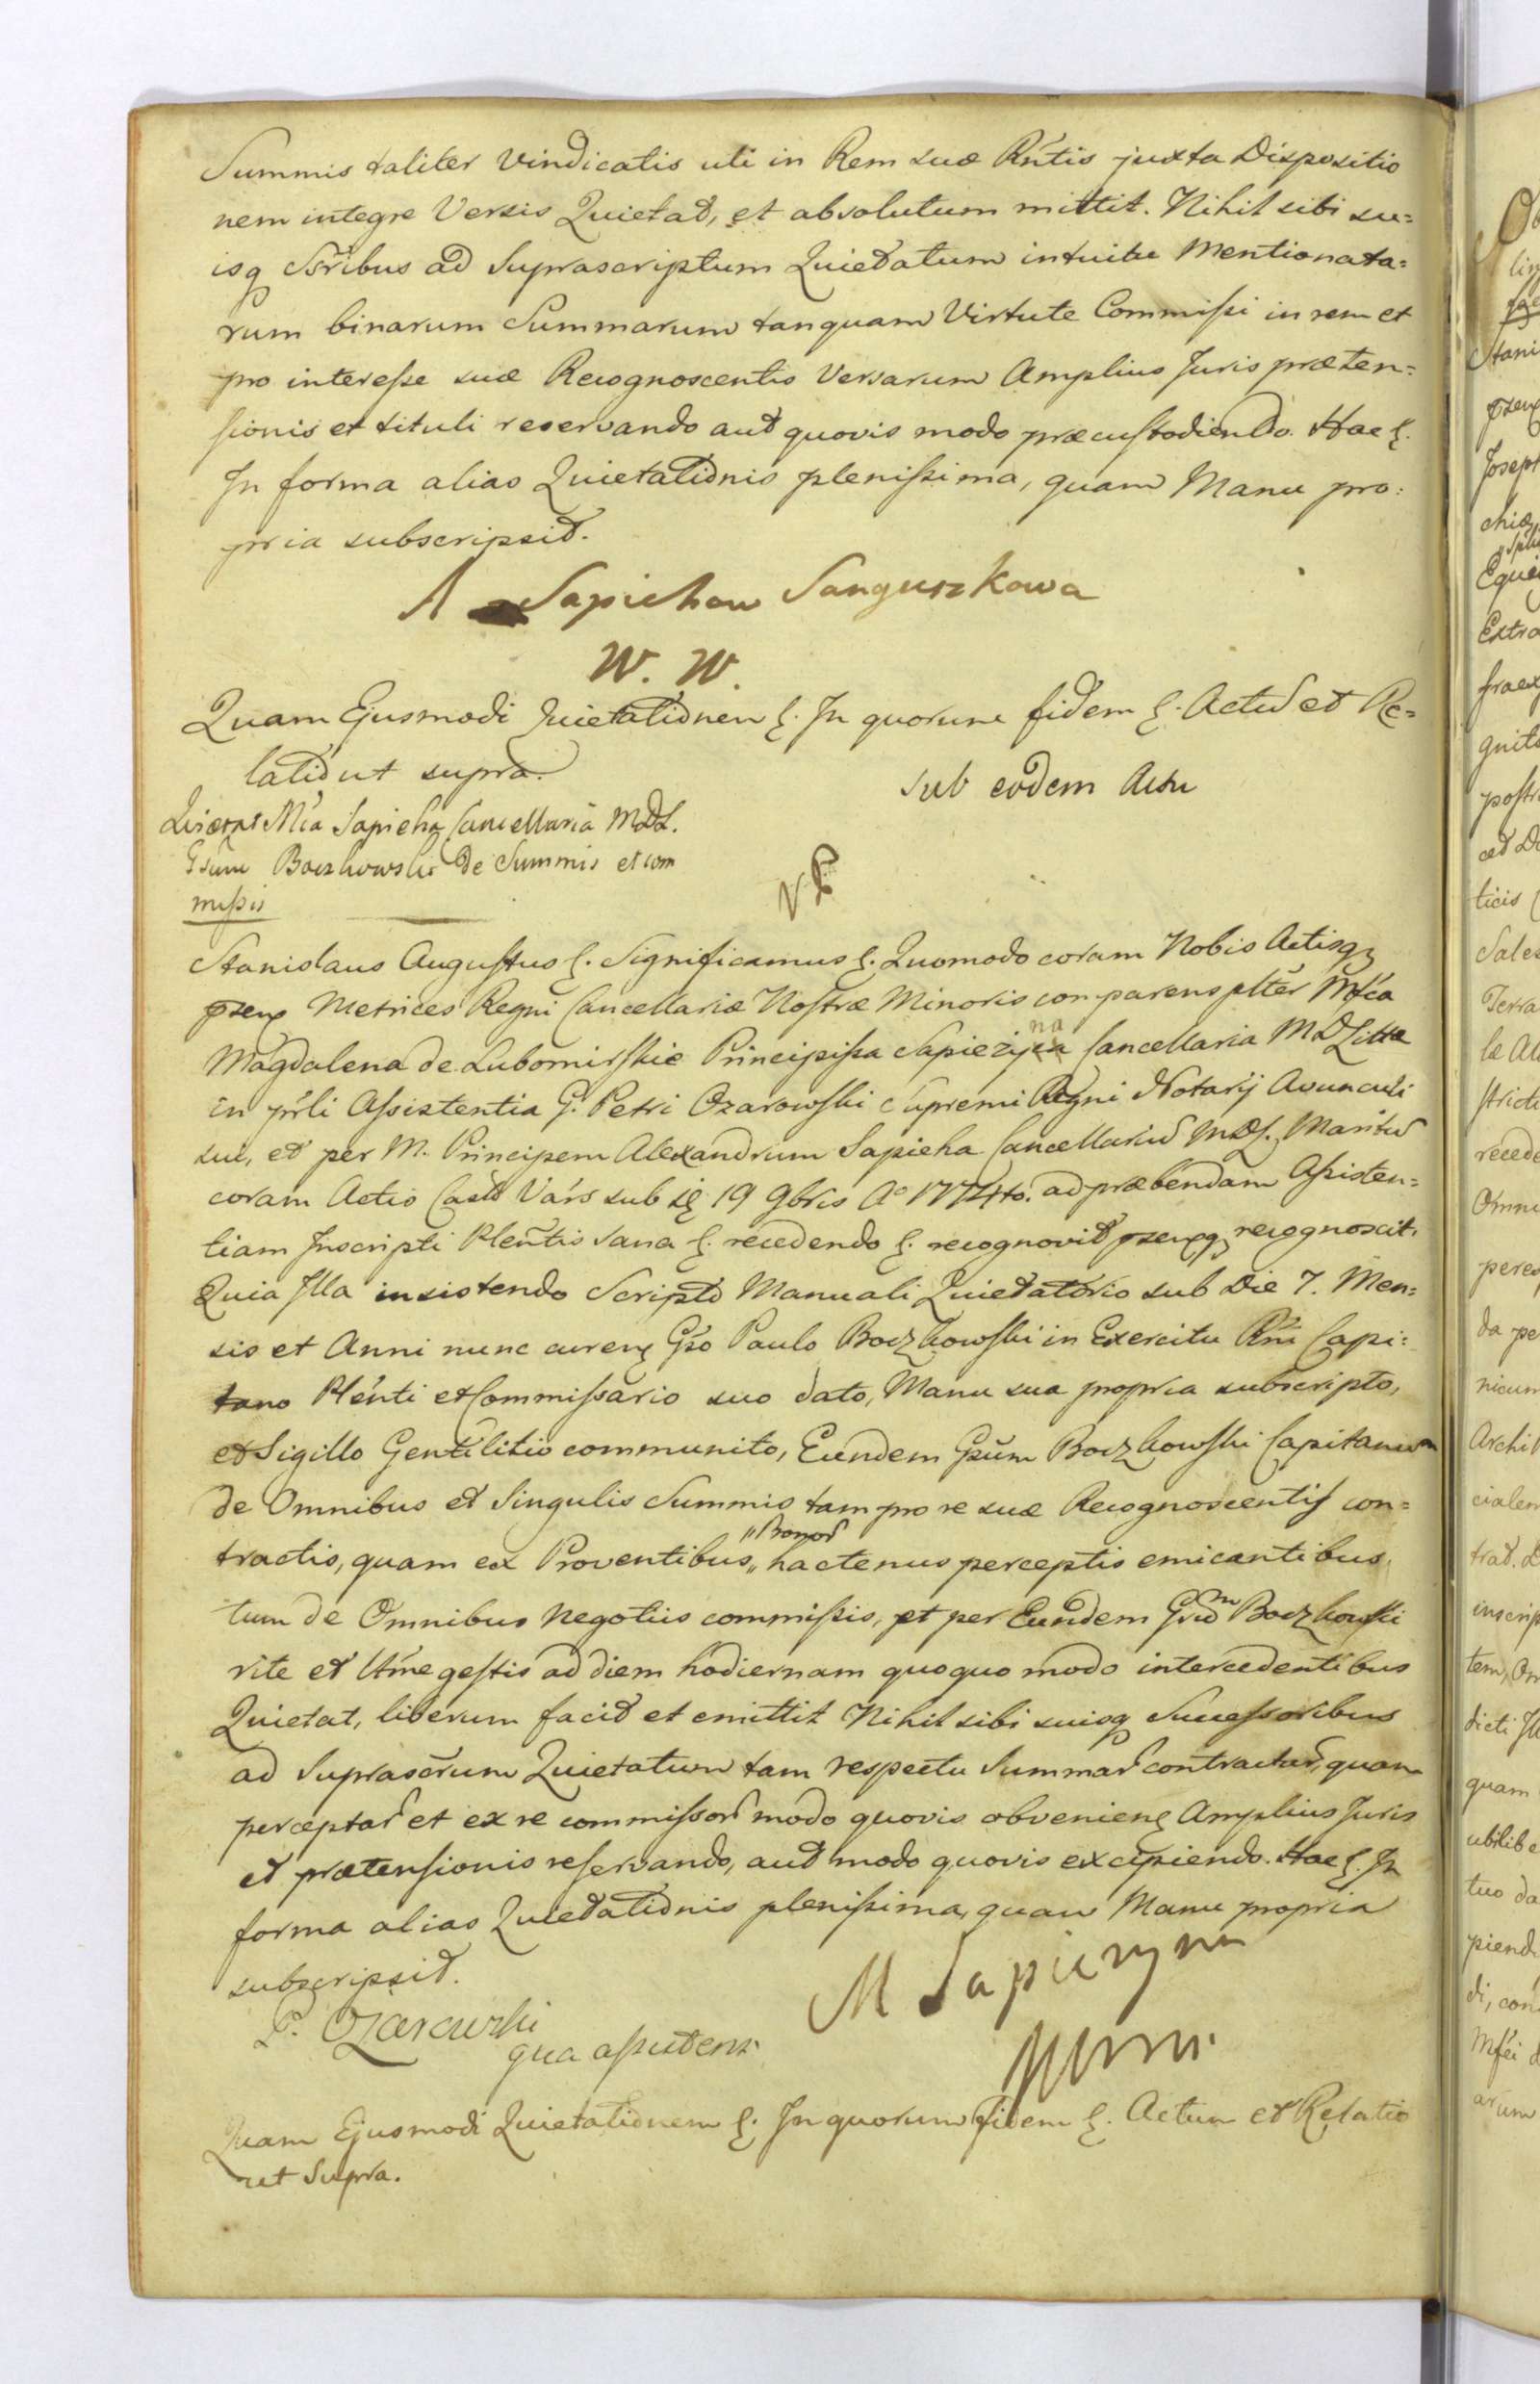 Summis taliter Vindicatis uti in Rem suæ Rńtis juxta Dispositio
nem integre Versis Quietat, et absolutum mittit. Nihil sibi su=
isq Ssribus ad Suprascriptum Quietatum intuitu Mentionata=
rum binarum Summarum tanquam Virtute Commissi in rem et
pro interesse suæ Recognoscentis Versarum Amplius Juris præten=
sionis et tituli reservando aut quovis modo præcustodiendo. Hac
In forma alias Quietationis plenissima, quam Manu pro:
pria subscripsit.
A Sapiehow Sanguszkowa
W. W.
Quam Ejusmodi Quietationem In quorum fidem Actu et Re=
latio ut supra.
Sub eodem Actu
Quietat Mca Sapieha Cancellaria MDL.
Gsum Boczkowski de Summis et com
missis
Stanislaus Augustus Significamus Quomodo coram Nobis Actisq
Metrices Regni Cancellariæ Nostræ Minoris comparens plter Mfca
Magdalena de Lubomirskie Principissa Sapiezyna Cancellaria MDLittæ
in pŕli Assistentia G. Petri Ozarowski Supremi Regni Notarij Avunculi
sui, et per M. Principem Alexandrum Sapieha Cancellariu MDL. Maritu
coram Actis Cast Vars sub 19 9bris Aº 1774to. ad præbendam Assisten=
tiam Inscripti Pleñtis sana recedendo recognovit recognoscit.
Quia Illa insistendo Scripto Manuali Quietatorio sub Die 7. Men=
sis et Anni nunc curren Gso Paulo Boczkowski in Exercitu Rńi Capi=
tano Pleńti et Commissario suo dato, Manu sua propria subscripto,
et Sigillo Gentilitio communito, Eundem Gsum Boczkowski Capitanum
de Omnibus et Singulis Summis tam pro re suæ Recognoscentis con=
tractis, quam ex Proventibus „ hactenus perceptis emicantibus,
„Bonor
tum de Omnibus negotiis commissis, et per Eundem Gsum Boczkowski
rite et gestis ad diem hodiernam quoquo modo intercedentibus
Quietat, liberum facit et emittit Nihil sibi suisq Successoribus
ad Suprascrum Quietatum tam respectu Summar contractar, quam
perceptar et ex re commissor modo quovis obvenien Amplius Juris
et prætensionis reservando, aut modo quovis excipiendo. Hac In
forma alias Quietationis plenissima, quam Manu propria
subscripsit.
M Sapiezyna
P. Ozarowski
qua assistens
Quam Ejusmodi Quietationem In quorum fidem Actum et Relatio
ut Supra.